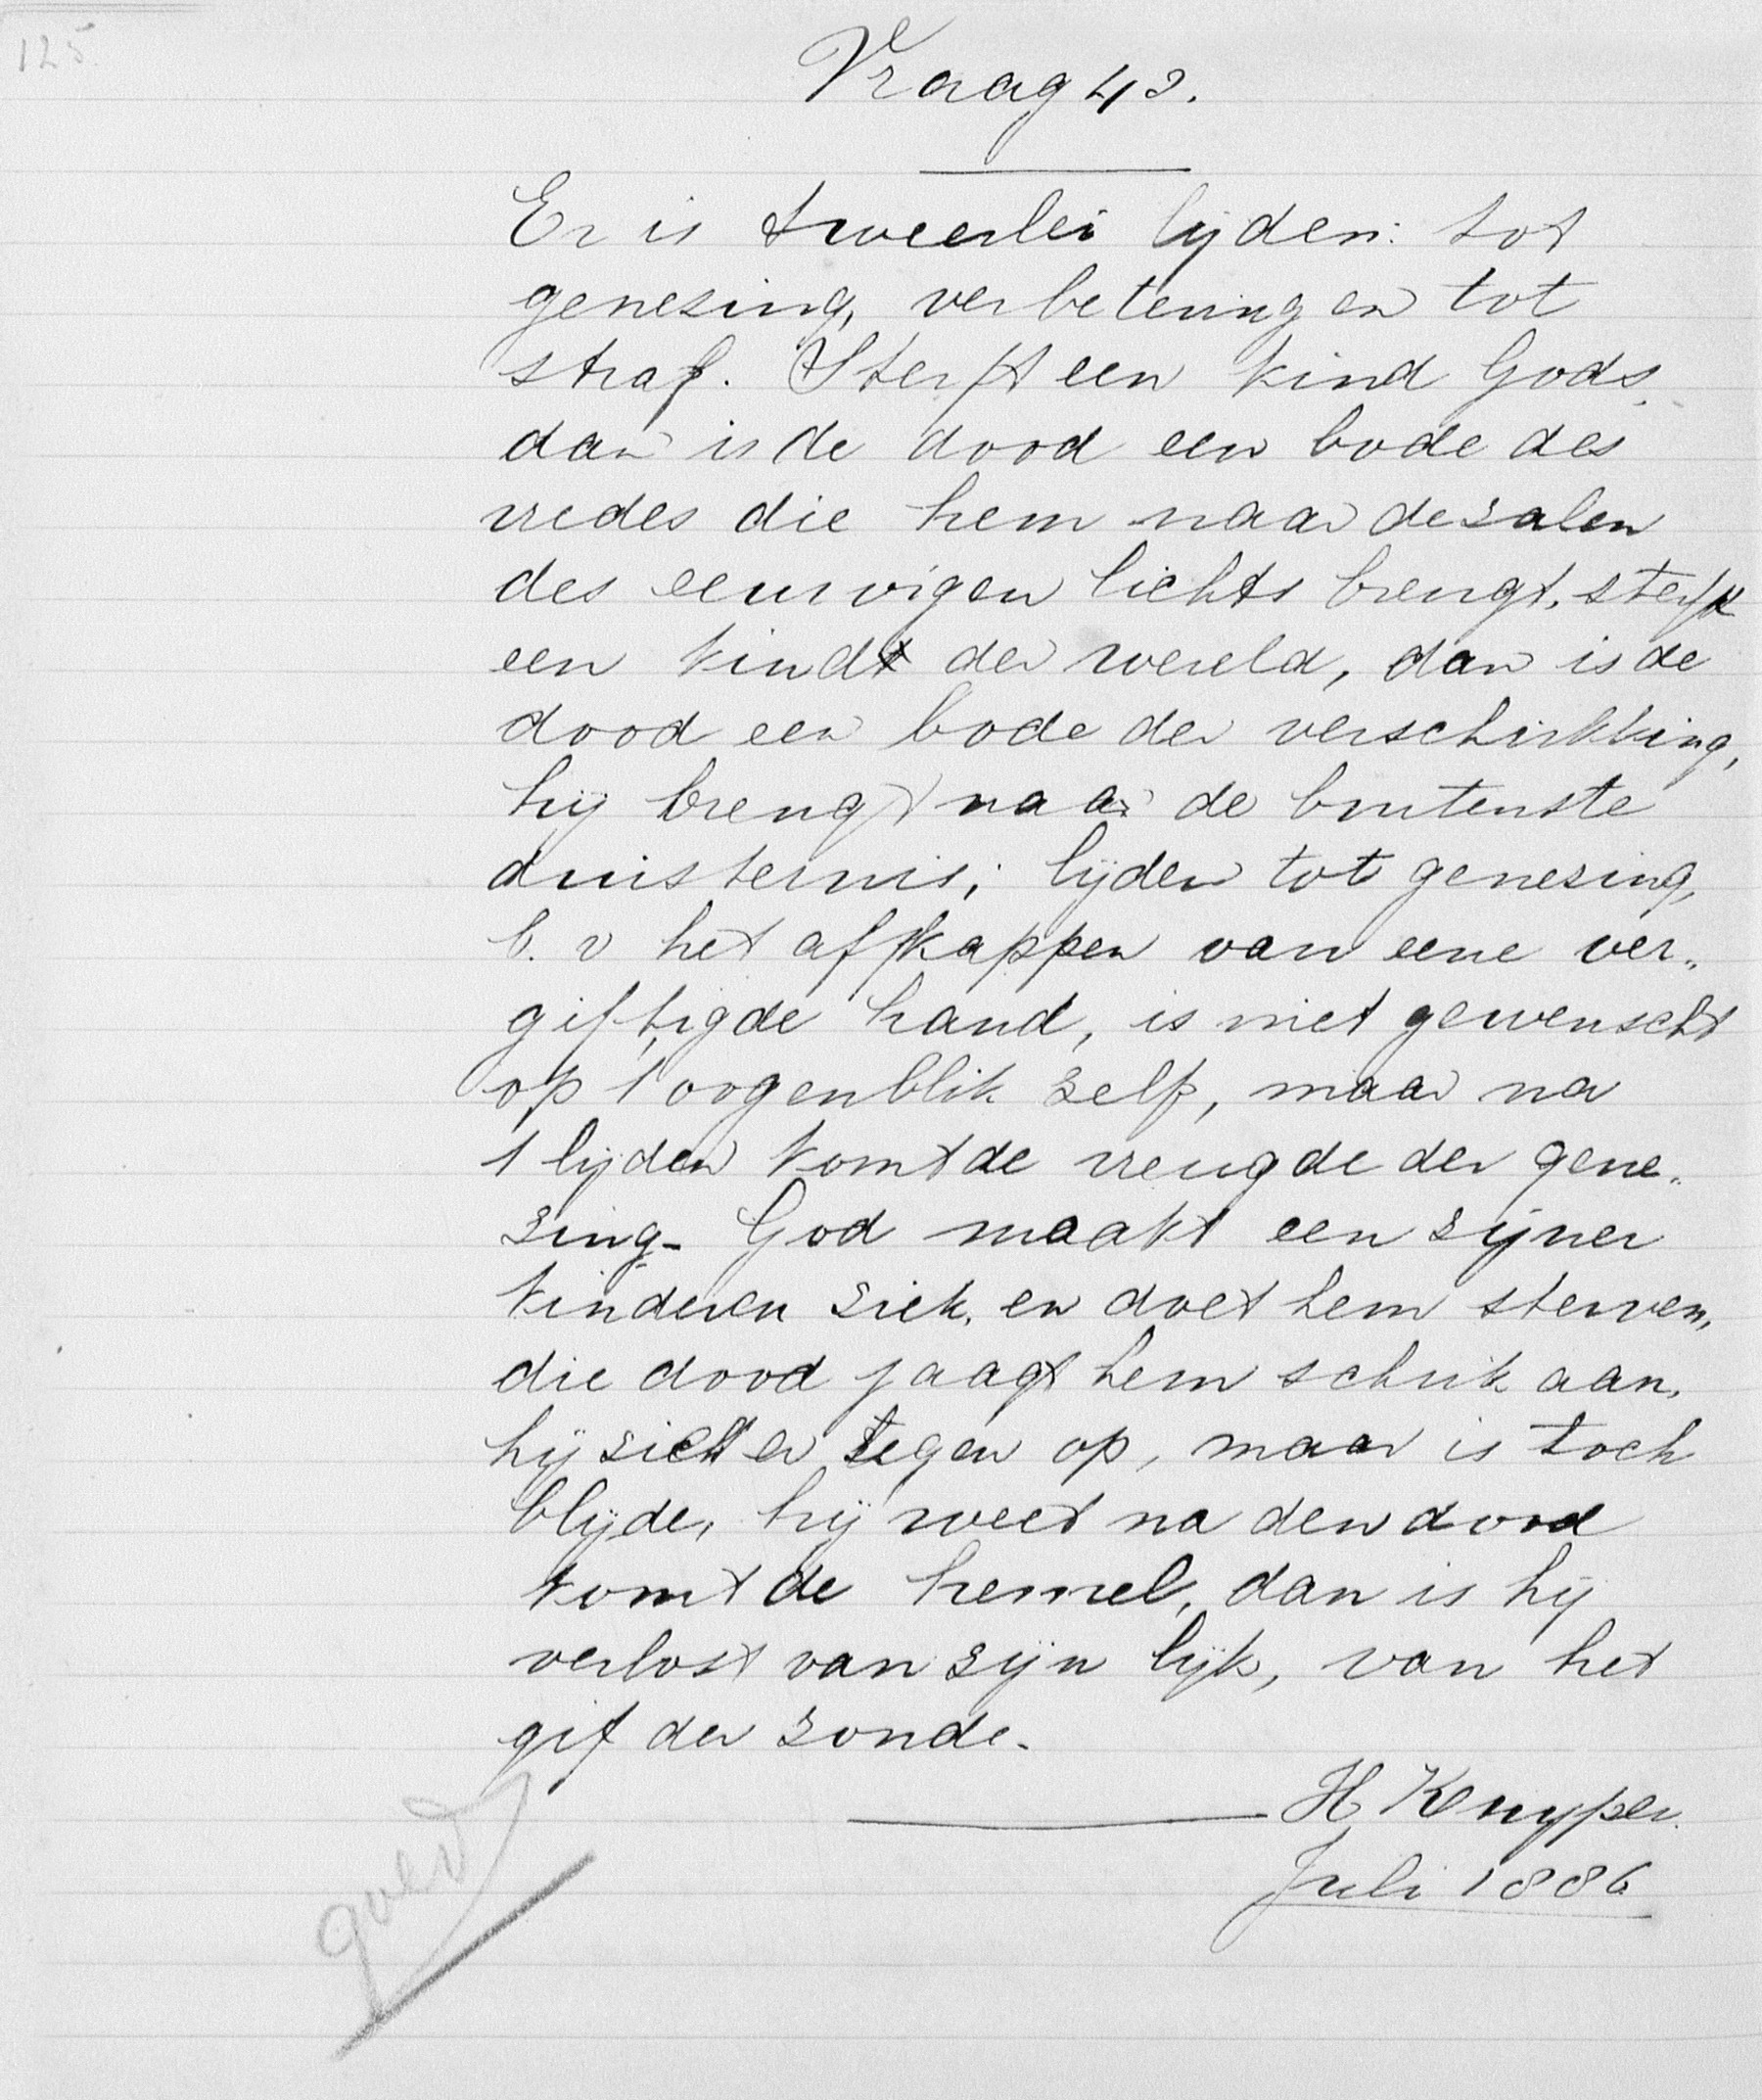 125.
Vraag 42.
Er is tweeerlei lijden: tot
genezing, verbetering en tot
straf. Sterft een kind Gods,
dan is de dood een bode des
vredes die hem naar de zalen
des eeuwigen lichts brengt, sterft
een kind der wereld, dan is de
dood een bode der verschrikking,
hij brengt naar de buitenste
duisternis; lijden tot genezing,
b. v het afkappen van eene ver„
giftigde hand, is niet gewenscht
op t oogenblik zelf, maar na
t lijden komt de vreugde der gene„
zing - God maakt een zijner
kinderen ziek, en doet hem sterven,
die dood jaagt hem schrik aan,
hij ziet er tegen op, maar is toch
blijde, hij weet na den dood
komt de hemel, dan is hij
verlost van zijn lijk, van het
gif der zonde.
H Kuyper.
Juli 1886
goed